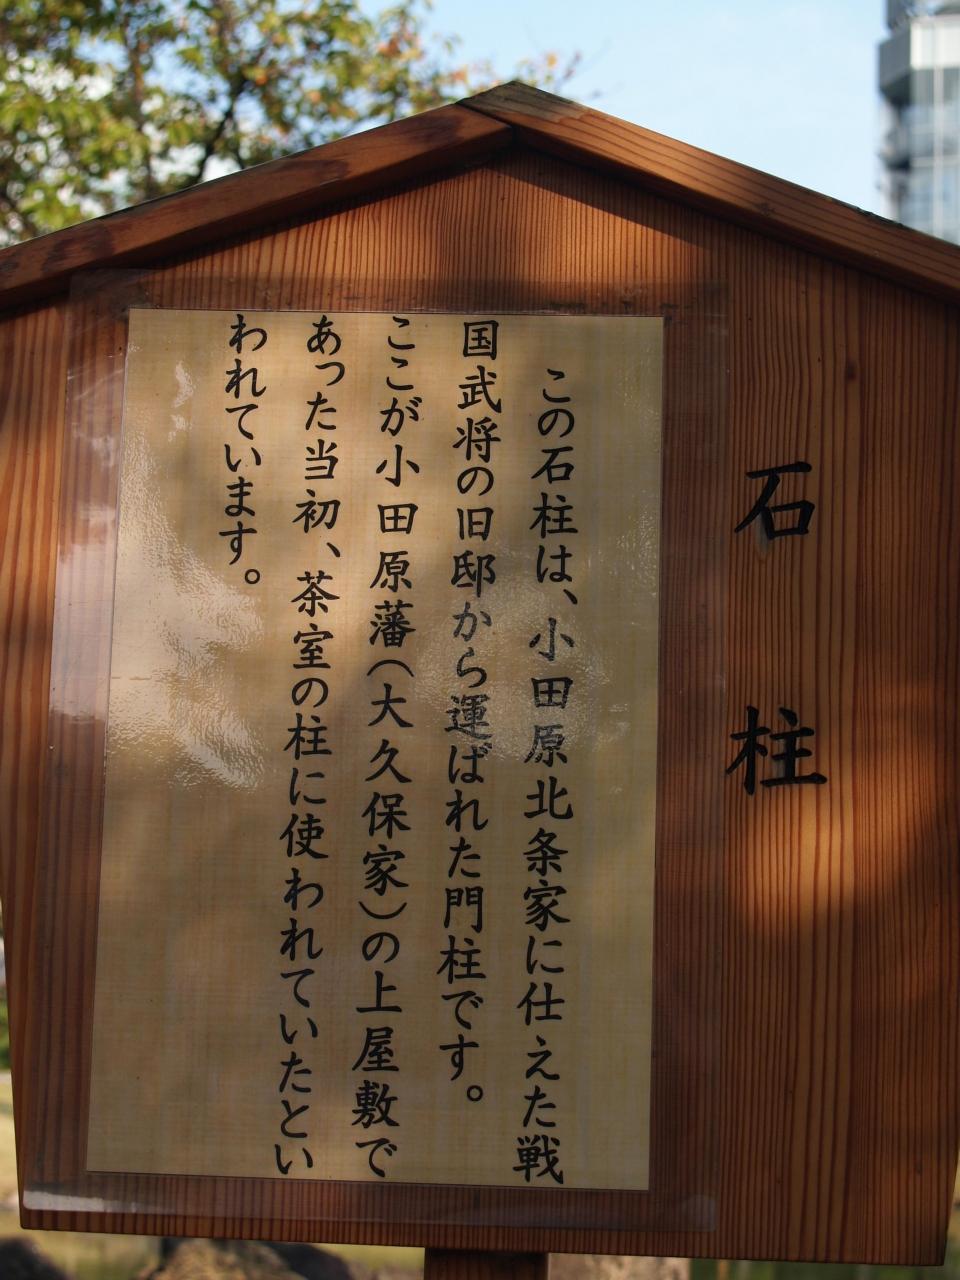 石柱
この石柱は、小田原北条家に仕えた戦
国武将の旧邸から運ばれた門柱です。
ここが小田原藩（大久保家）の上屋敷で
あった当初、茶室の柱に使われていたとい
われています。